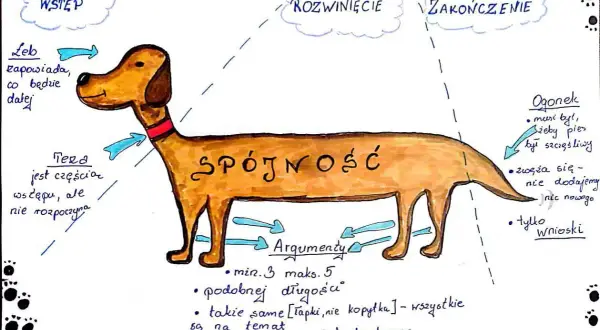 WSTĘP
ROZWINIĘCIE
ZAKOŃCZENIE
Łeb
zapowiada,
co będzie
dalej
Teza
jest częścią
wstępu, ale
nie rozpoczyna
SPÓJNOŚĆ
Ogonek
• musi być,
żeby pies
był szczęśliwy
• zwęża się -
nic dodajemy
nic nowego
• tylko
wnioski
Argumenty
• min. 3 maks. 5
• podobnej długości
• takie same [łapki, nie kopytka] - wszystkie
są na temat